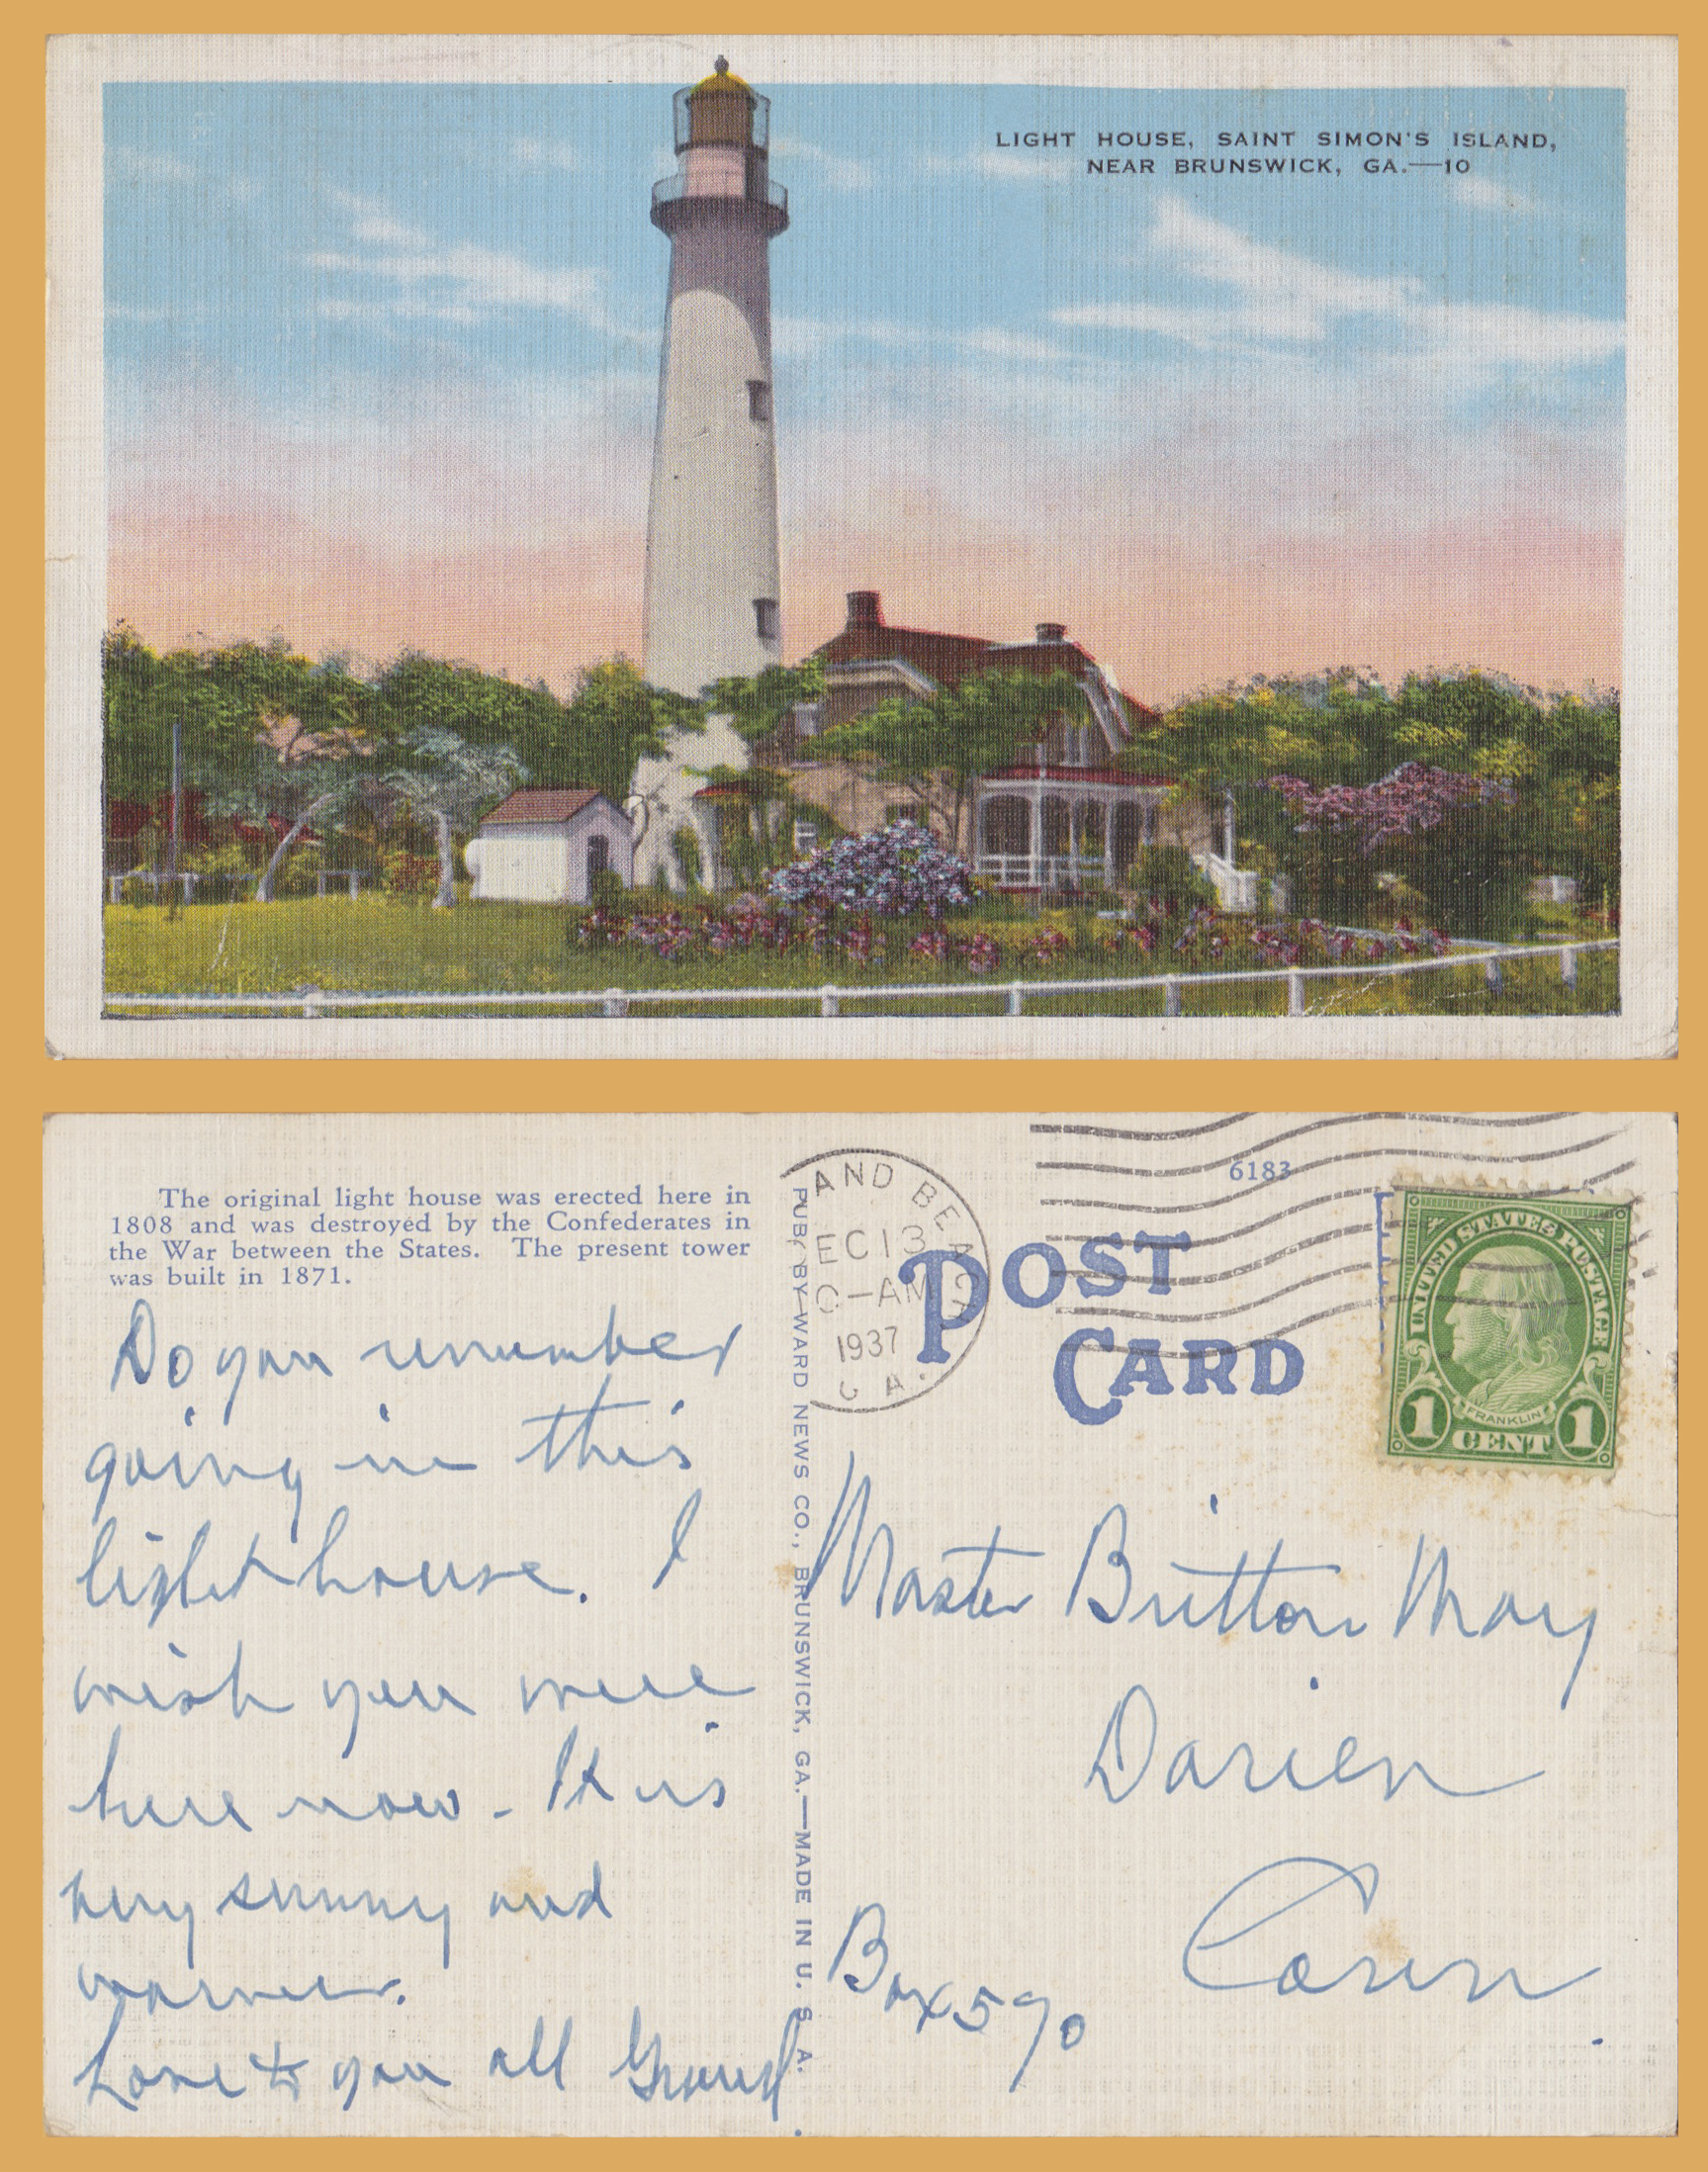 LIGHT HOUSE, SAINT SIMON'S ISLAND,
NEAR BRUNSWICK, GA.—10
The original light house was erected here in
1808 and was destroyed by the Confederates in
the War between the States. The present tower
was built in 1871.
Do you remember
going in this
light house. I
wish you were
here now - It is
very sunny and
warm.
Love to you all
PUB. BY WARD NEWS CO., BRUNSWICK, GA.—MADE IN U. S. A.
AND BEACH
EC 13
-AM
1937
GA.
6183
POST
CARD
UNITED STATES POSTAGE
FRANKLIN
1 CENT 1
Master Britton May
Darien
Conn
Box 590